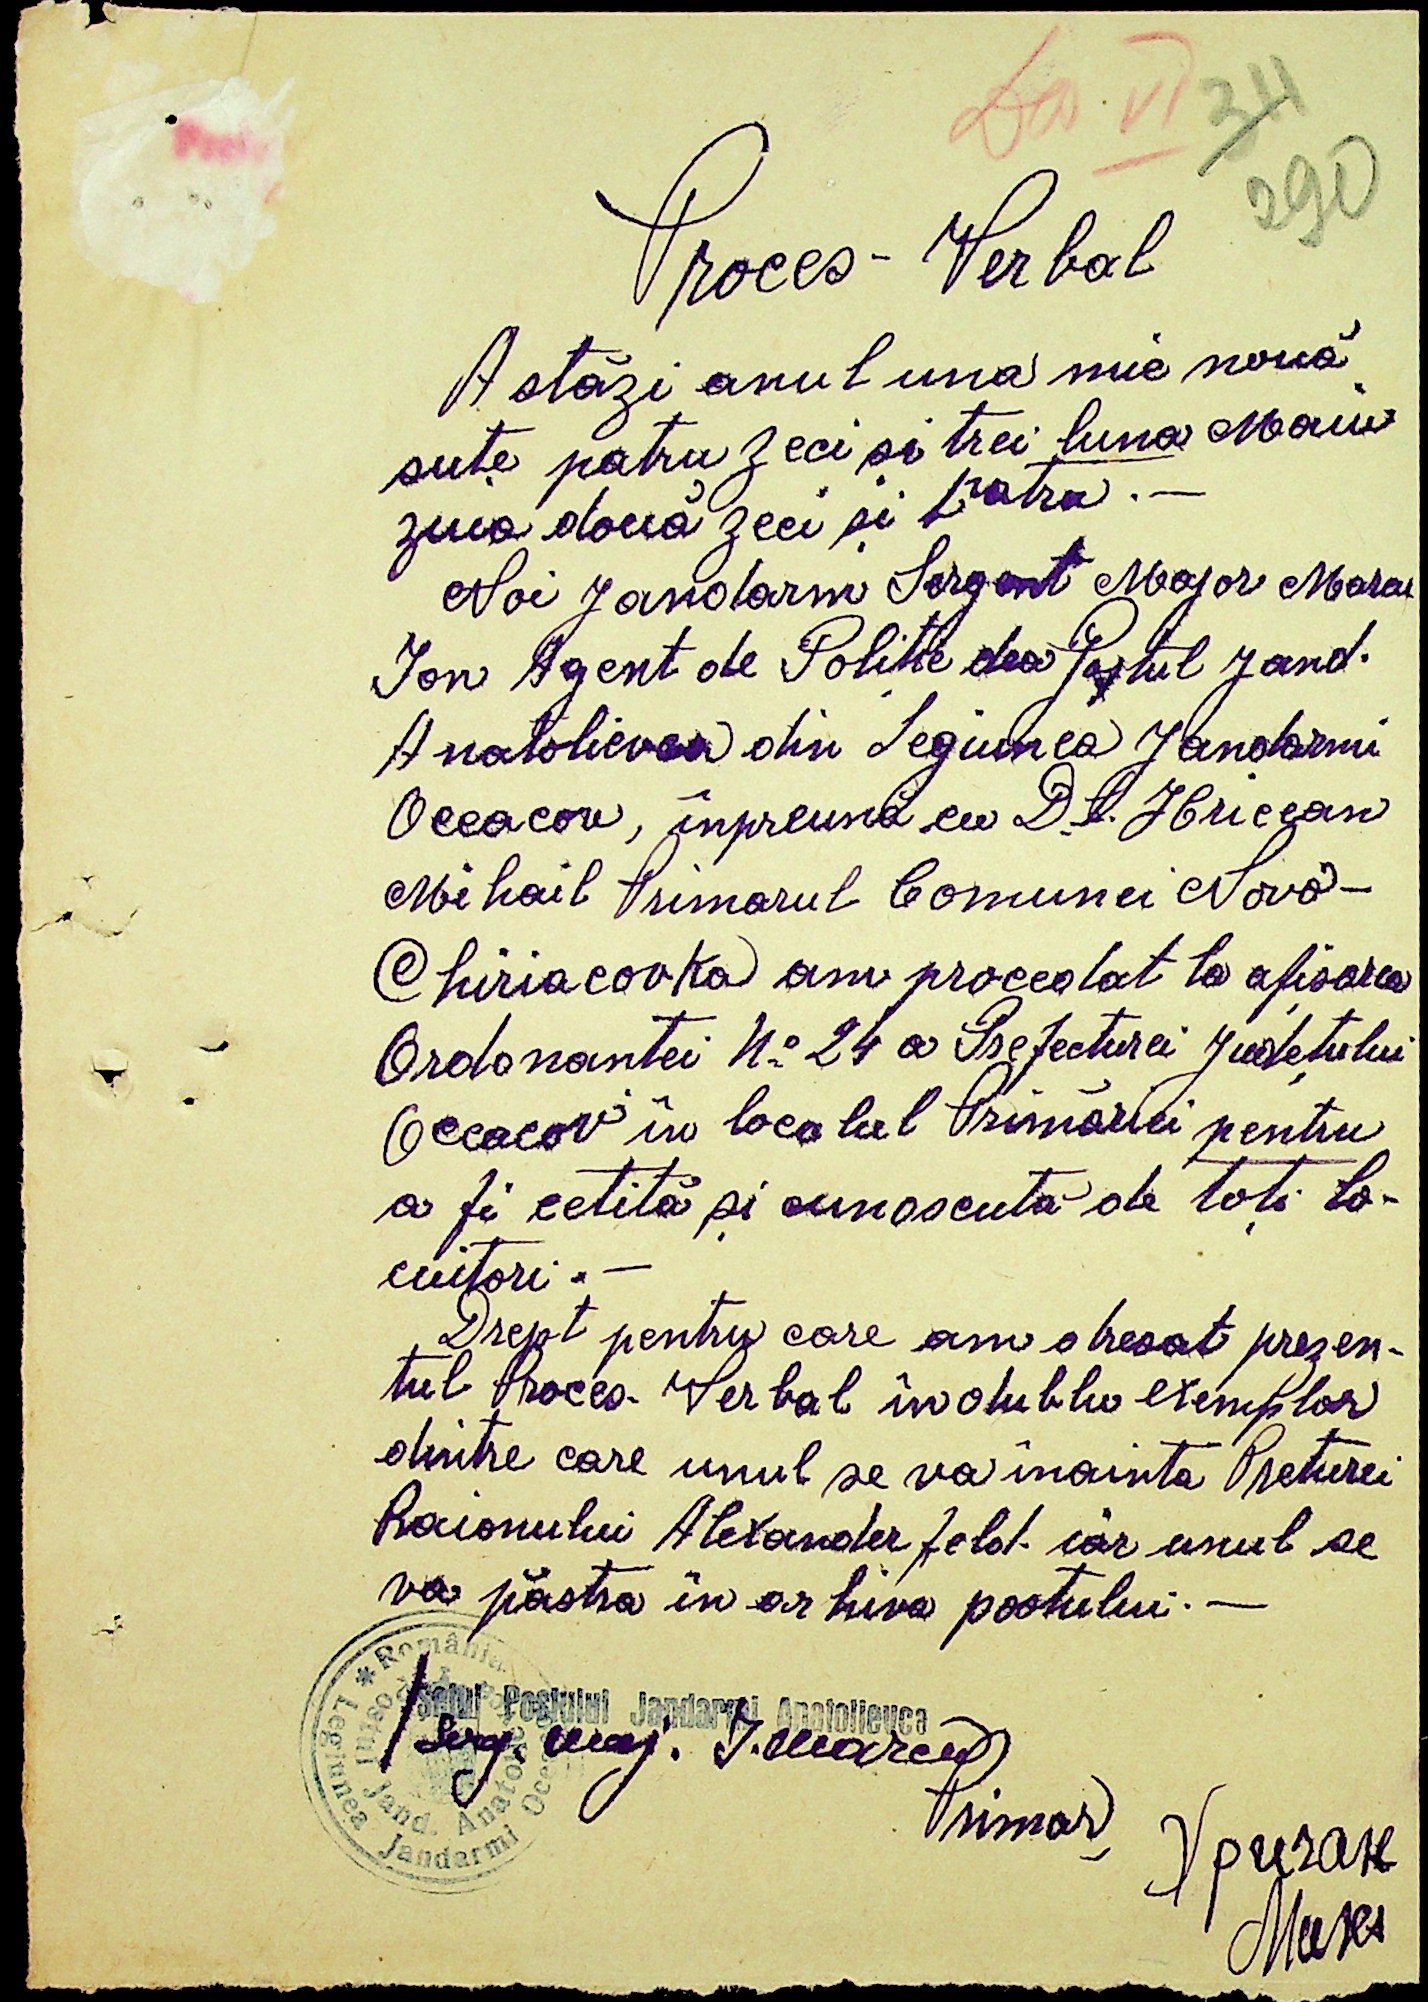 Dos VI 311
290
Proces-Verbal
Astăzi anul una mie nouă
sute patru zeci și trei luna Maiu
ziua două zeci și patru.—
Noi Jandarm Sergent Major Marcu
Ion Agent de Politie dea Postul Jand.
Anatolievca din Legiunea Jandarmi
Oceacov, înpreună cu D.l. Hriccan
Mihail Primarul Comunei Novo-
Chiriacovka am procedat la afișarea
Ordonantei No 24 a Prefecturei Județului
Oceacov în localul Primăriei pentru
a fi cetită și cunoscută de toți lo-
cuitori.—
Drept pentru care am dresat prezen-
tul Proces-Verbal în dublu exemplar
dintre care unul se va înainta Preturei
Raionului Alexanderfeld. iar unul se
va păstra în arhiva postului.—
Șeful Postului Jandarmi Anatolievca
Serg. Maj. I. Marcu
România
Legiunea Jandarmi Oce
Postul Jand. Anatol
Primar
Хричан
Миха